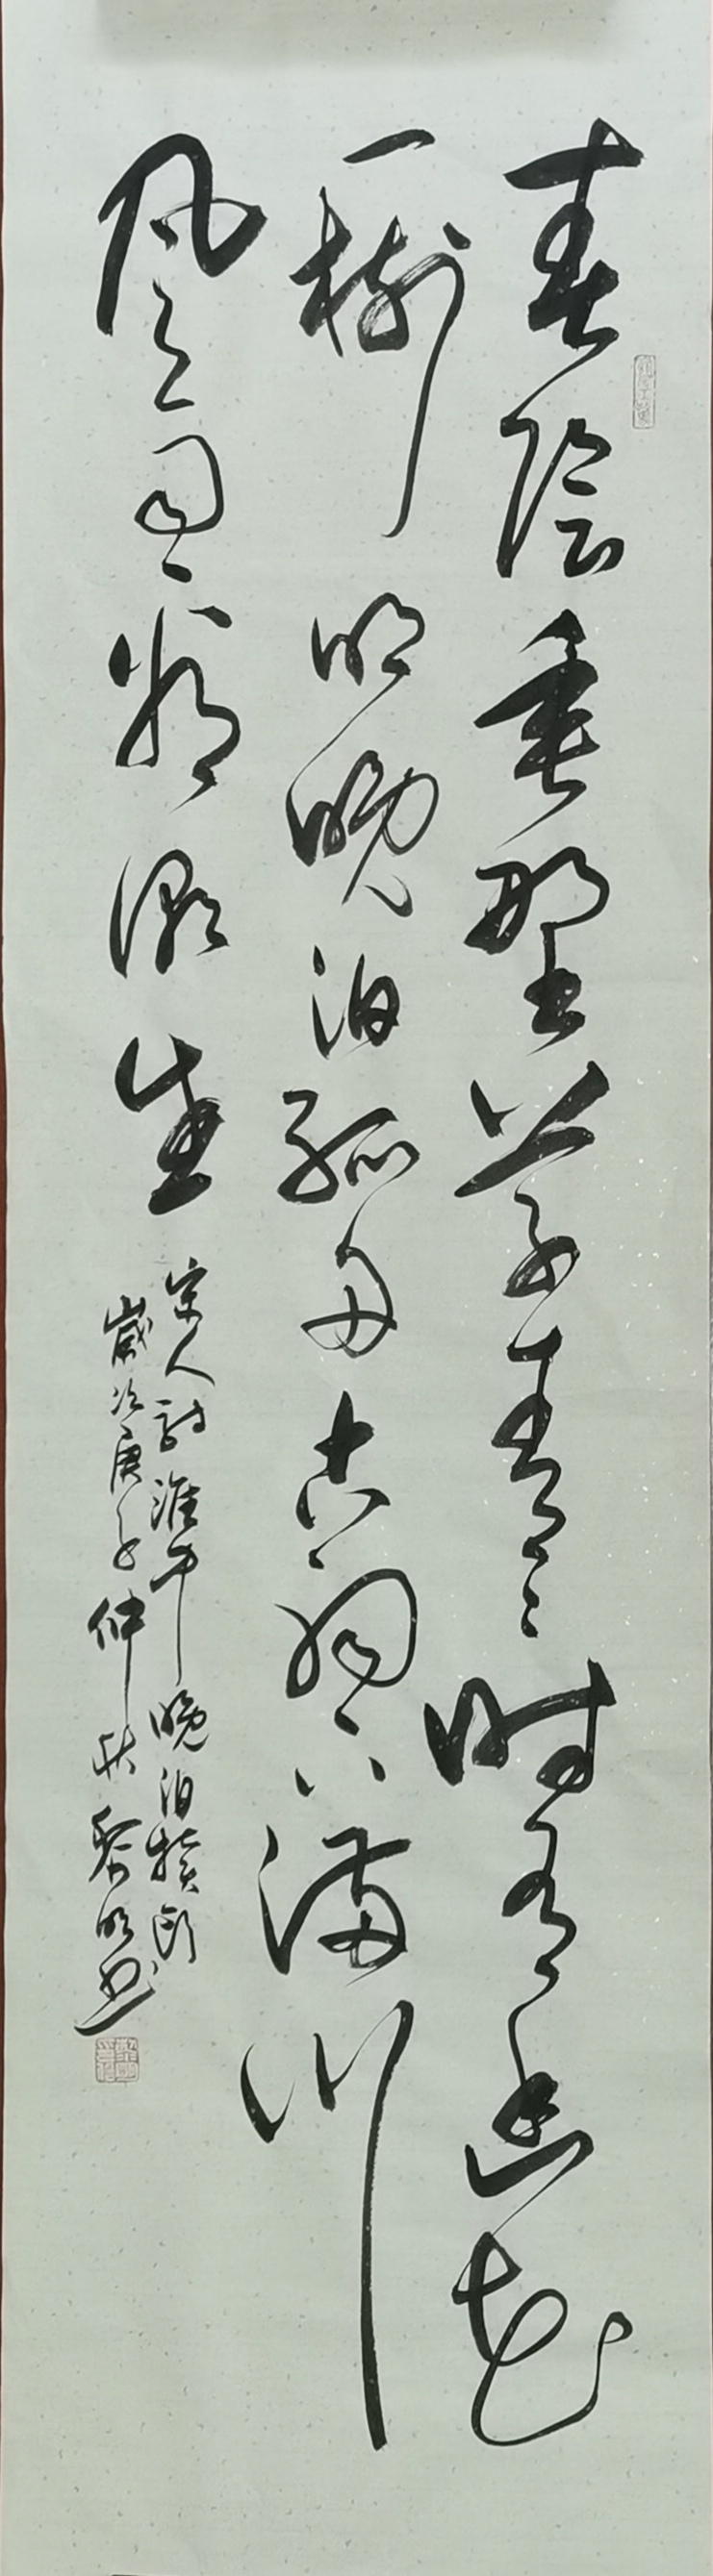 春阴垂野草青青时有幽花
一树明晚泊孤舟古祠下满川
风雨看潮生
宋人诗淮中晚泊犊头
岁次庚子仲秋黎明书